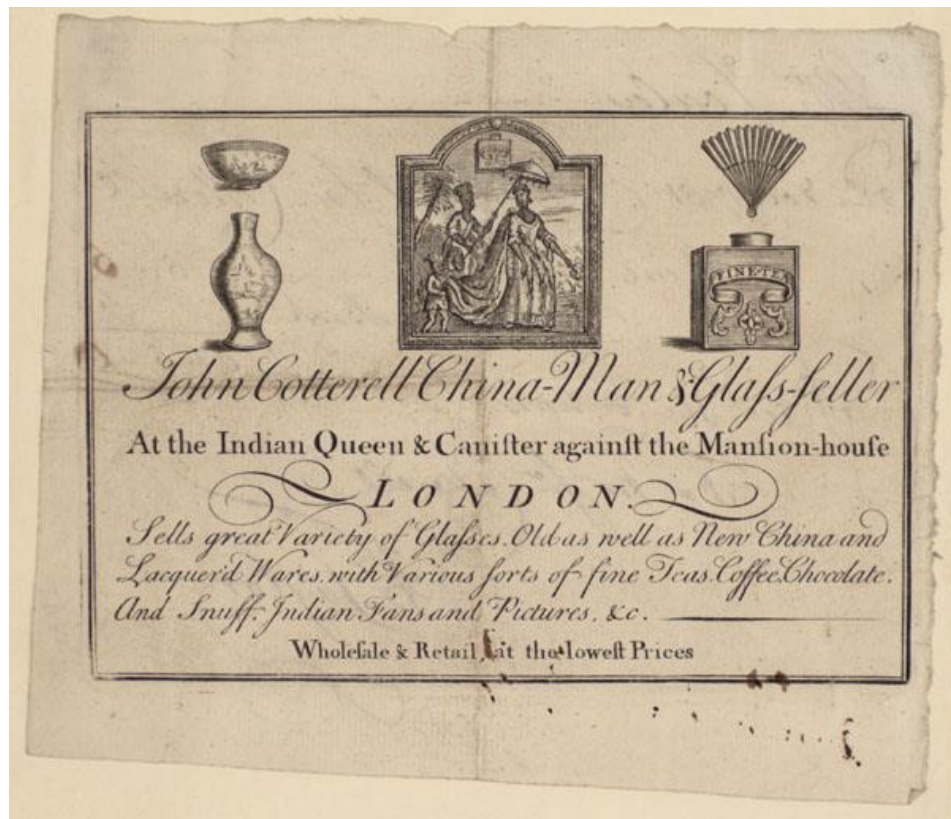 FINE·TEA
John Cotterell China-Man & Glaſs-ſeller
At the Indian Queen & Caniſter againſt the Manſion-houſe
LONDON.
Sells great Variety of Glaſses. Old as well as New China and
Lacquer'd Wares. with Various ſorts of fine Teas. Coffee. Chocolate.
And Snuff. Indian Fans and Pictures, &c.
Wholeſale & Retail, at the loweſt Prices